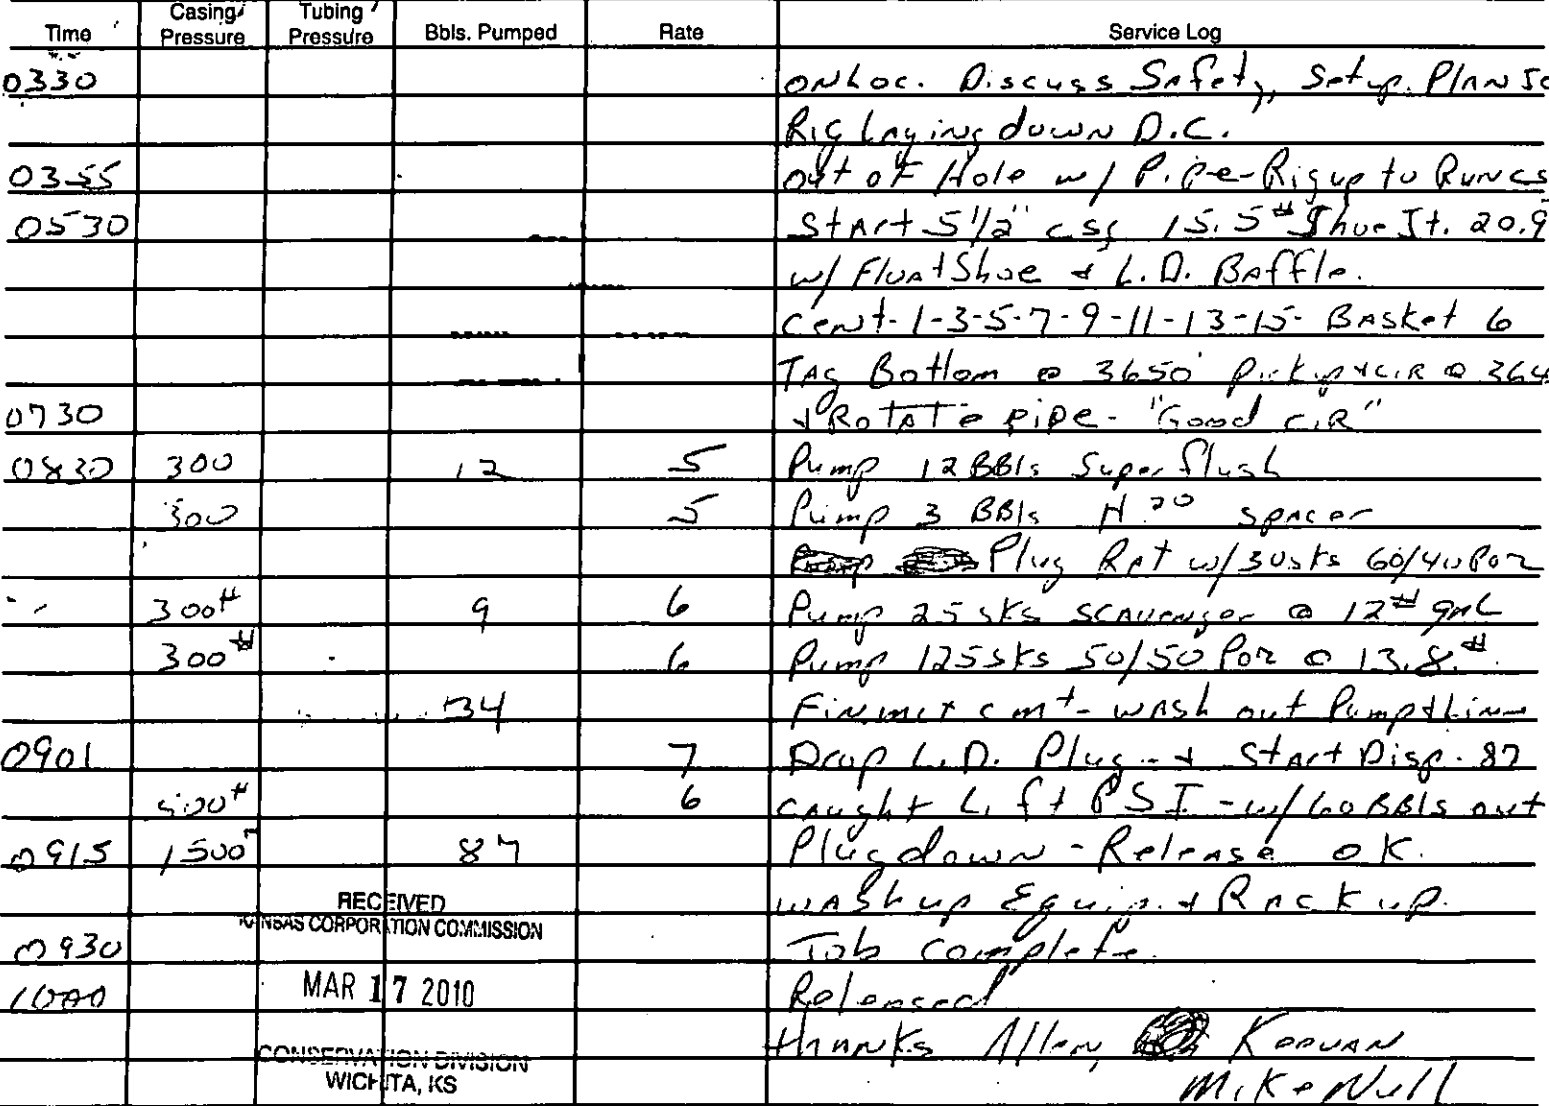 Time Casing Pressure Tubing Pressure Bbls. Pumped Rate Service Log
0330 ONLoc. Discuss Safety, Setup. Plan Jo
Rig Laying down D.C.
0355 out of Hole w/ Pipe-Rig up to Run cs
0530 Start 5 1/2" csg 15.5# Shoe Jt. 20.9
w/ Float Shoe & L.D. Baffle.
Cent-1-3-5-7-9-11-13-15- Basket 6
Tag Bottom @ 3650' Pickup & CIR @ 364
0730 & Rotate pipe- "Good CIR"
0830 300 12 5 Pump 12 BBls Superflush
300 5 Pump 3 BBls H20 spacer
Plug Rat w/30sks 60/40 Poz
300# 9 6 Pump 25 sks scavenger @ 12#
300# 6 Pump 125sks 50/50 Poz @ 13.8#
34 cmt- wash out Pump & Line
0901 7 Drop L.D. Plug & Start Disp. 87
6 caught Lift PSI - w/60 BBls out
0915 1500 87 Plugdown - Release OK.
washup Equip. & Rack up.
0930 Job complete.
1000 Released
thanks Allen, Keevan
Mike Null
RECEIVED
KANSAS CORPORATION COMMISSION
MAR 17 2010
CONSERVATION DIVISION
WICHITA, KS